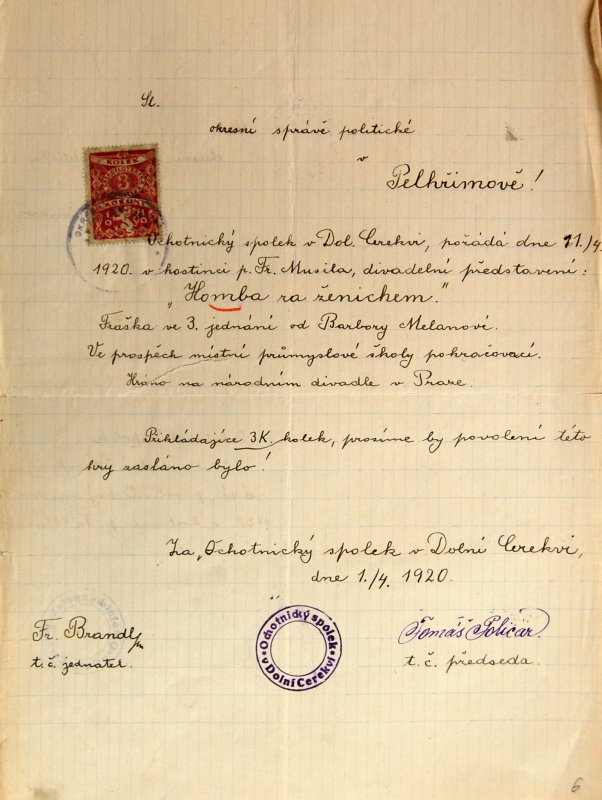 Sl.
okresní správě politické
v
Pelhřimově!
KOLEK
3
Ochotnický spolek v Dol. Cerekvi, pořádá dne 11./4.
1920. v hostinci p. Fr. Musila, divadelní představení:
"Homba za ženichem."
Fraška ve 3. jednání od Barbory Melanové.
Ve prospěch místní průmyslové školy pokračovací.
Hráno na národním divadle v Praze.
Přikládajíce 3K. kolek, prosíme by povolení této
hry zasláno bylo!
Za "Ochotnický spolek v Dolní Cerekvi,
dne 1./4. 1920.
Fr. Brandl
t. č. jednatel.
Ochotnický spolek
v Dolní Cerekvi
Tomáš Policar
t. č. předseda.
6